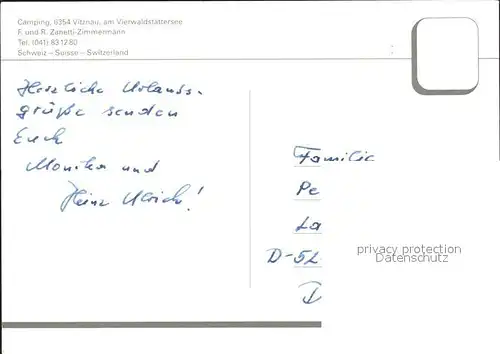 Camping, 6354 Vitznau, am Vierwaldstättersee
F. und R. Zanetti-Zimmermann
Tel. (041) 83 12 80
Schweiz – Suisse – Switzerland
Herzliche Urlaubs-
grüße senden
Euch
Monika und
Heinz Ulrich!
Familie
Pe
La
D-52
privacy protection
Datenschutz